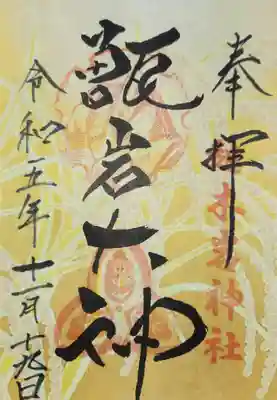 奉拝
越木岩神社
甑岩大神
令和五年十一月十九日